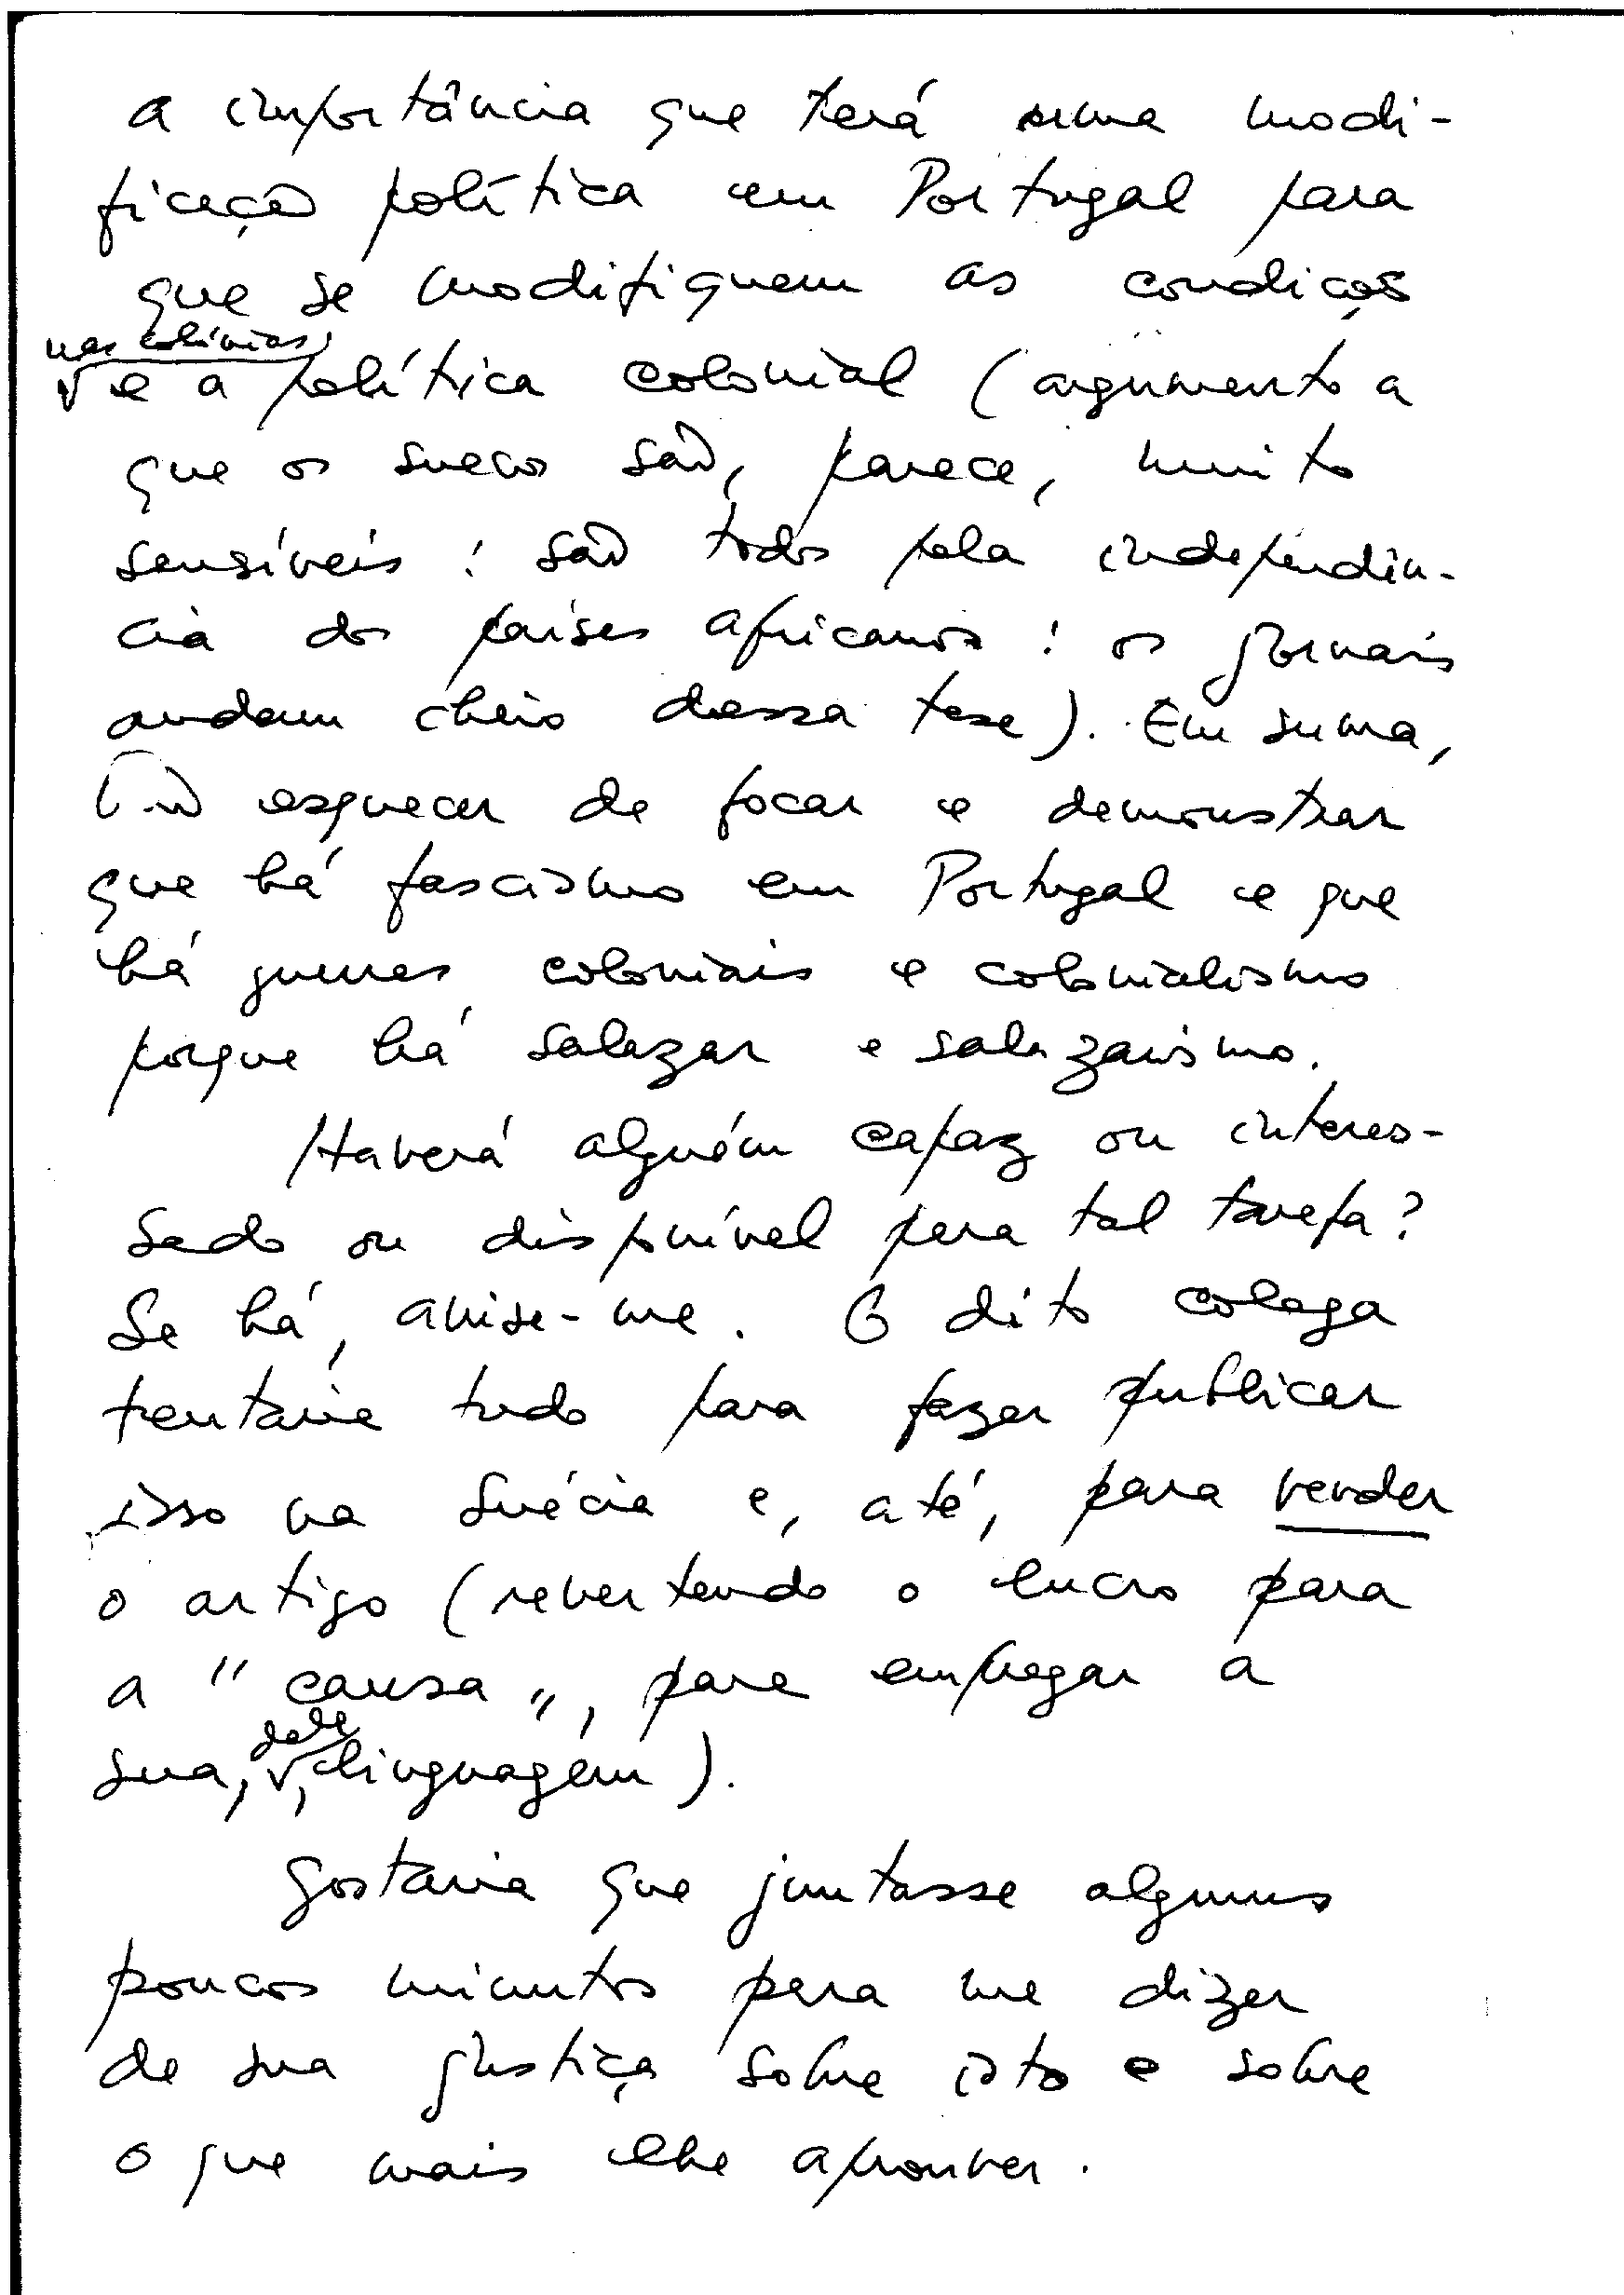 a importância que terá uma modi-
ficação política em Portugal para
que se modifiquem as condições
nas colónias,
e a política colonial (argumento a
que os suecos são, parece, muito
sensíveis: são todos pela independên-
cia dos países africanos: os jornais
andam cheios dessa tese). Em suma,
não esquecer de focar e demonstrar
que há fascismo em Portugal e que
há guerras coloniais e colonialismo
porque há Salazar e salazarismo.
Haverá alguém capaz ou interes-
sado ou disponível para tal tarefa?
Se há, avise-me. O dito colega
tentaria tudo para fazer publicar
isso na Suécia e, até, para vender
o artigo (revertendo o lucro para
a "causa", para empregar a
dele
sua, , linguagem).
Gostaria que juntasse alguns
poucos minutos para me dizer
de sua justiça sobre isto e sobre
o que mais lhe aprouver.